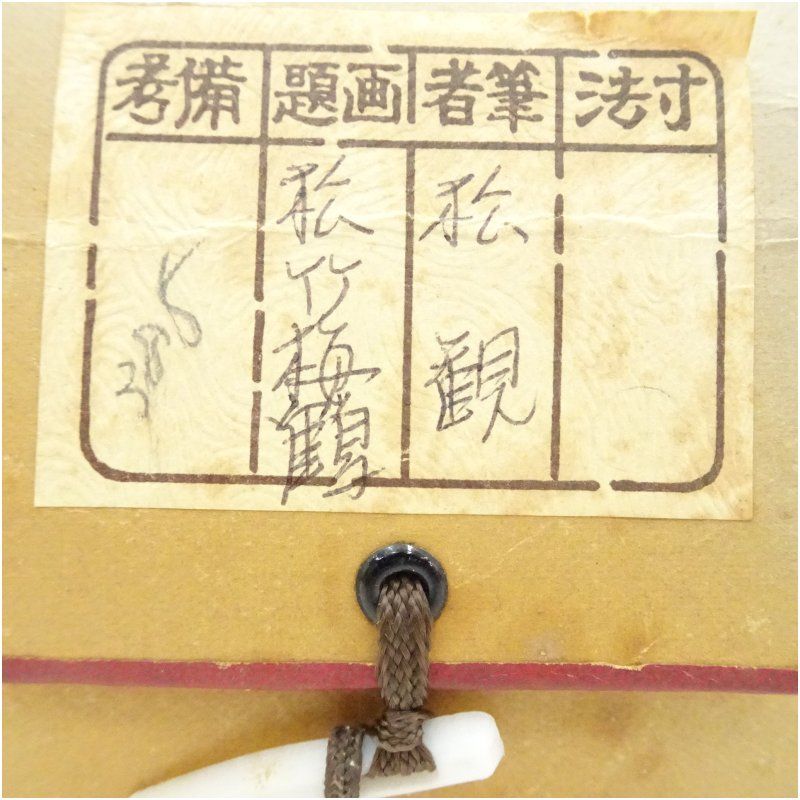 寸法
筆者
画題
備考
松観
松竹梅鶴
385